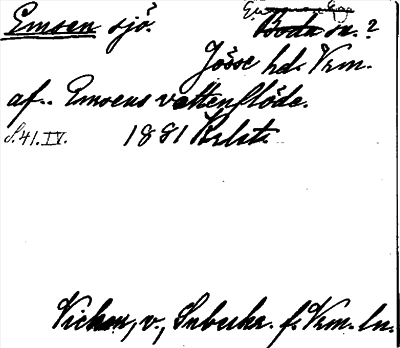 Emsen sjö. Boda sn.?
Jösse hd. Vrm.
af.. Emsens vattenflöde.
S.41.IV. 1881 Krlst.
Vickon, v., Snbeskr. f. Vrm. ln.